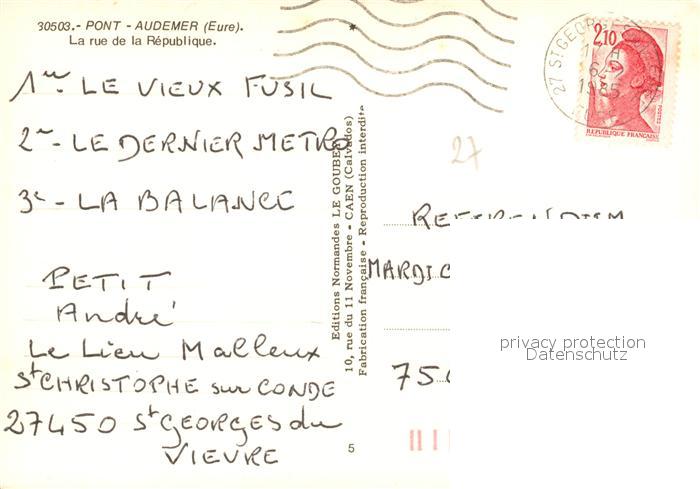 30503.- PONT - AUDEMER (Eure).
La rue de la République.
1er. LE VIEUX FUSIL
2e - LE DERNIER METRO
3e - LA BALANCE
PETIT
André
Le Lieu Malleux
St CHRISTOPHE sur CONDE
27450 St GEORGES du
VIEVRE
5
Editions Normandes LE GOUBEY
10, rue du 11 Novembre - CAEN (Calvados)
Fabrication française - Reproduction interdite
27
27 ST GEORGES
1985
2,10
POSTES
REPUBLIQUE FRANÇAISE
REFERENDUM
MARDI
75
privacy protection
Datenschutz